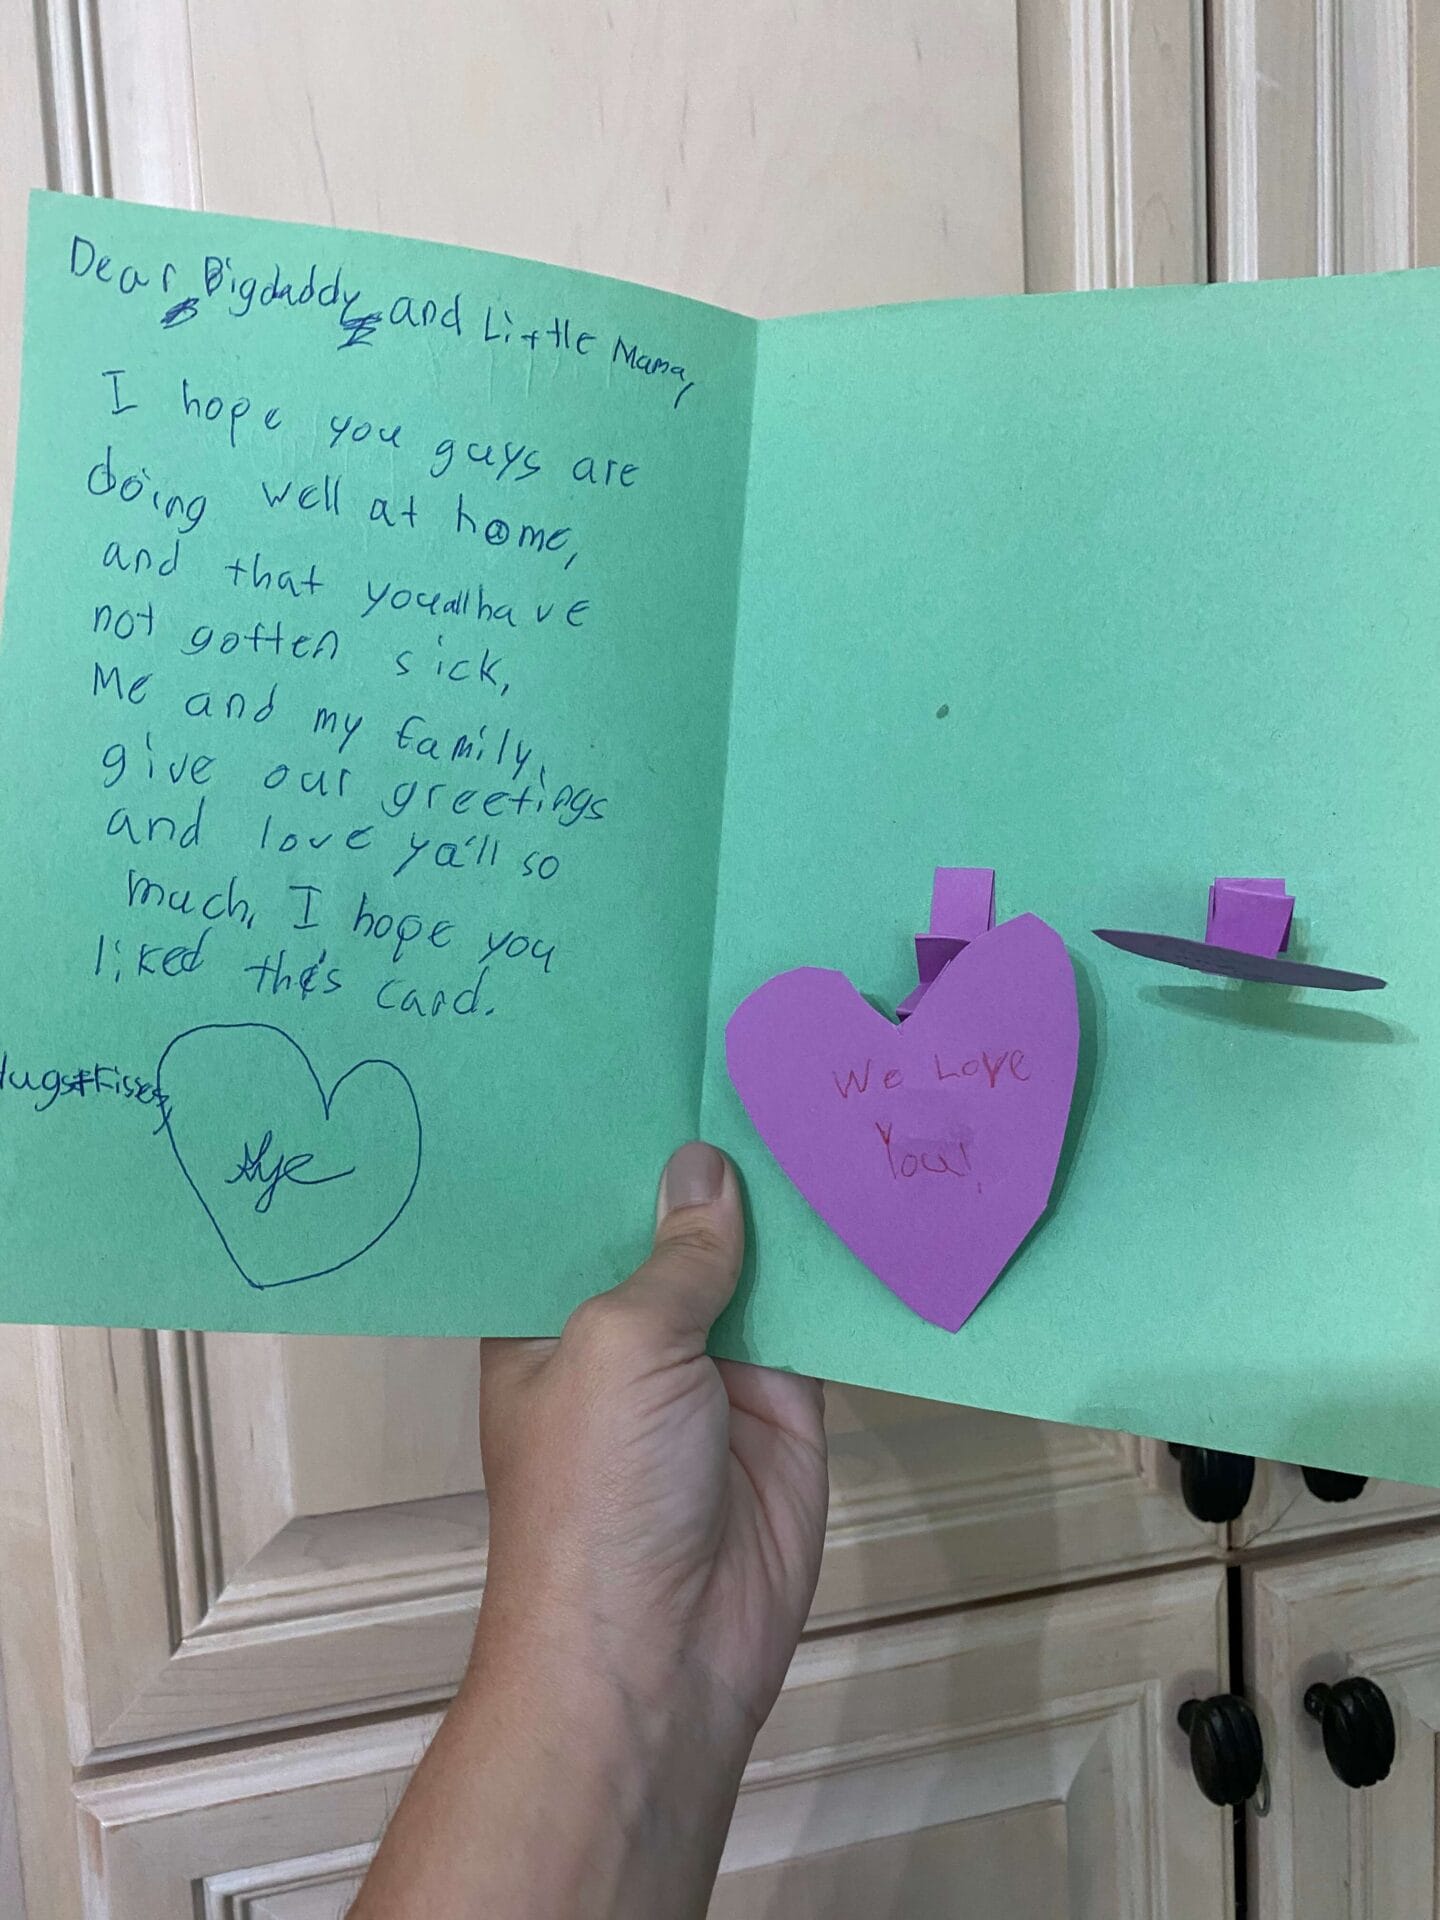 Dear Bigdaddy and Little Mama,
I hope you guys are
doing well at home,
and that you all have
not gotten sick,
Me and my family,
give our greetings
and love ya'll so
much, I hope you
liked this card.
Hugs+Kisses,
We Love
You!